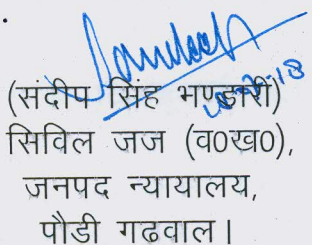 (संदीप सिंह भण्डारी)
सिविल जज (व0ख0),
जनपद न्यायालय,
पौडी गढवाल।